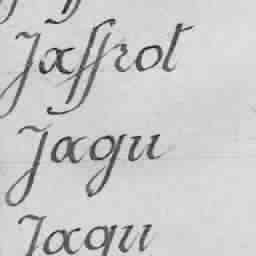 Jaſſrot
Jagu
Jagu